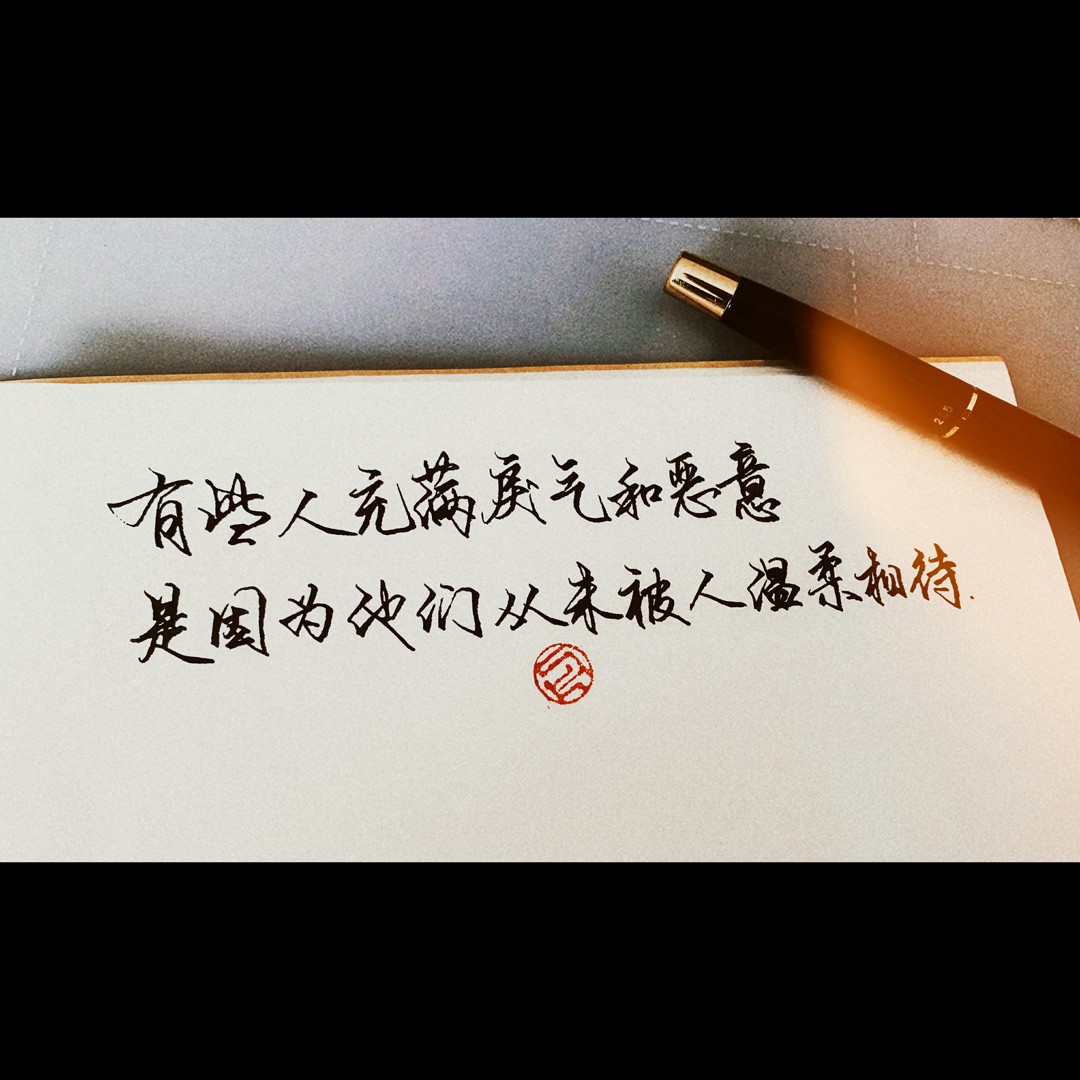 有些人充满戾气和恶意
是因为他们从未被人温柔相待.